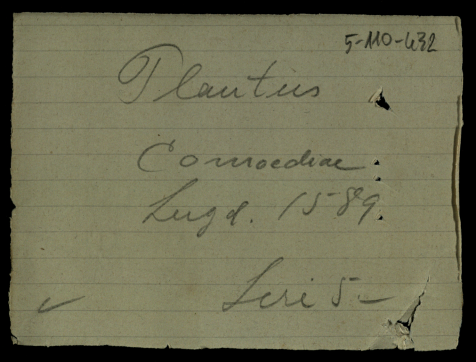 5-110-432
Plautus
Comoediae
Lugd. 1589
Leri 5-